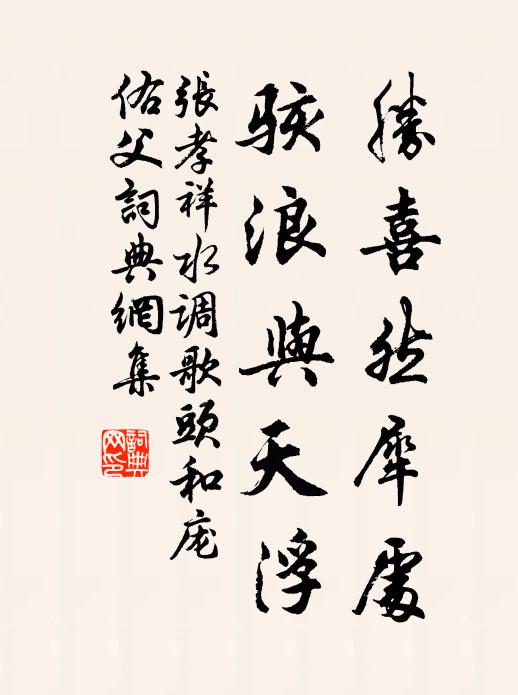 勝喜然犀處
駭浪與天浮
張孝祥水调歌頭和庞
佑父詞典網集
詞典网印